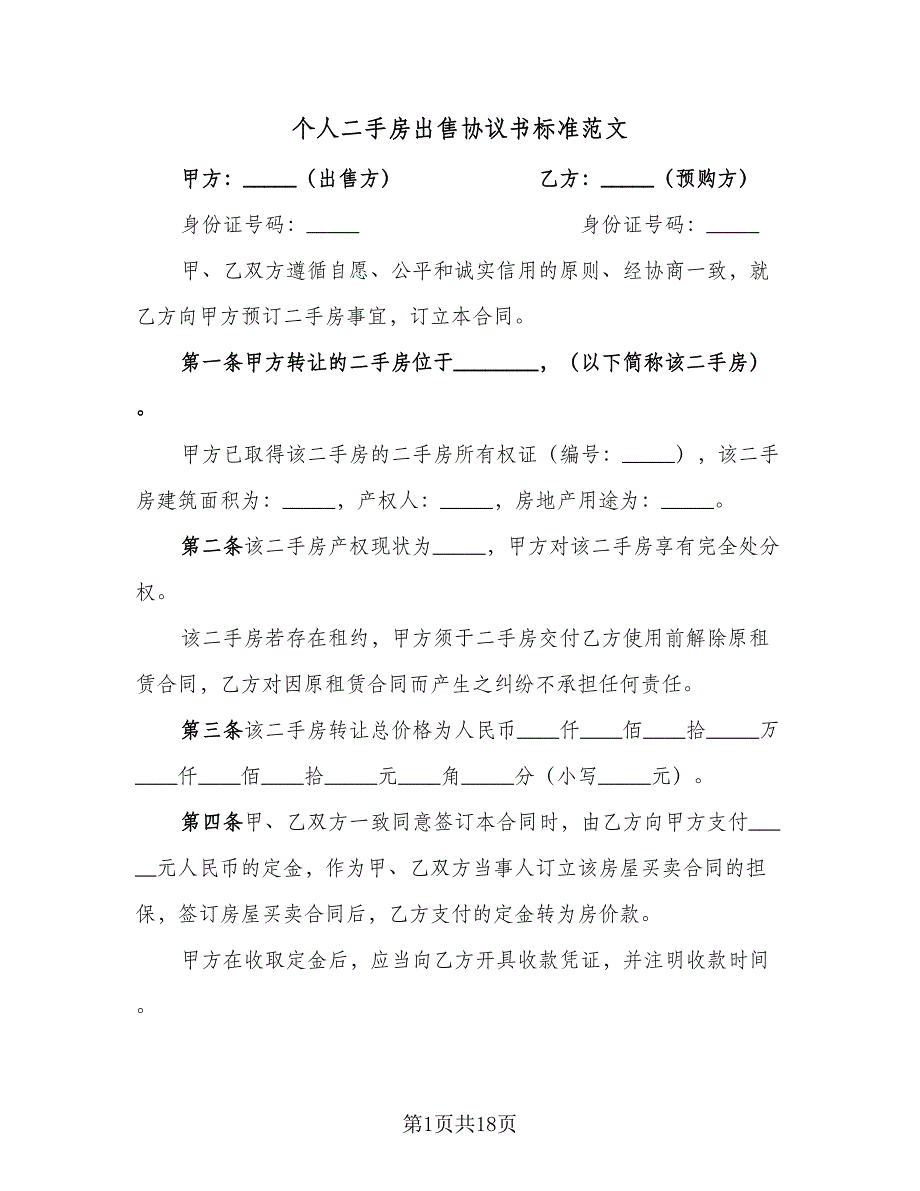 个人二手房出售协议书标准范文
甲方：_____（出售方） 乙方：_____（预购方）
身份证号码：_____ 身份证号码：_____
甲、乙双方遵循自愿、公平和诚实信用的原则、经协商一致，就
乙方向甲方预订二手房事宜，订立本合同。
第一条甲方转让的二手房位于________，（以下简称该二手房）
。
甲方已取得该二手房的二手房所有权证（编号：_____），该二手
房建筑面积为：_____，产权人：_____，房地产用途为：_____。
第二条该二手房产权现状为_____，甲方对该二手房享有完全处分
权。
该二手房若存在租约，甲方须于二手房交付乙方使用前解除原租
赁合同，乙方对因原租赁合同而产生之纠纷不承担任何责任。
第三条该二手房转让总价格为人民币____仟____佰____拾_____万
____仟____佰____拾_____元____角_____分（小写_____元）。
第四条甲、乙双方一致同意签订本合同时，由乙方向甲方支付___
__元人民币的定金，作为甲、乙双方当事人订立该房屋买卖合同的担
保，签订房屋买卖合同后，乙方支付的定金转为房价款。
甲方在收取定金后，应当向乙方开具收款凭证，并注明收款时间
。
第1页共18页